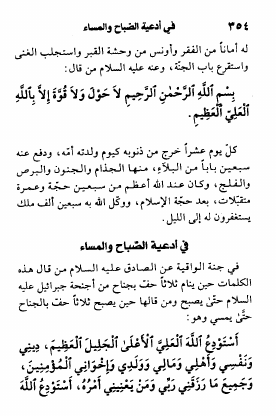 ٣٥٤ في أدعية الصّباح والمساء
له أماناً من الفقر وأونس من وحشة القبر واستجلب الغنى
واستقرع باب الجنّة، وعنه عليه السلام من قال:
بِسْمِ اللَّهِ الرَّحْمٰنِ الرَّحِيمِ لاَ حَوْلَ وَلاَ قُوَّةَ إِلاَّ بِاللَّهِ
الْعَلِيِّ الْعَظِيمِ.
كلّ يوم عشراً خرج من ذنوبه كيوم ولدته أمّه، ودفع عنه
سبعين باباً من البلاء، منها الجذام والجنون والبرص
والفلج، وكان عند الله أعظم من سبعين حجّة وعمرة
متقبّلات، بعد حجّة الإسلام، ووكّل الله به سبعين ألف ملك
يستغفرون له إلى الليل.
في أدعية الصّباح والمساء
في جنة الواقية عن الصادق عليه السلام من قال هذه
الكلمات حين ينام ثلاثاً حفّ بجناح من أجنحة جبرائيل عليه
السلام حتّى يصبح ومن قالها حين يصبح ثلاثاً حفّ بالجناح
حتّى يمسي وهو:
أَسْتَوْدِعُ اللَّهَ الْعَلِيَّ الْأَعْلَى الْجَلِيلَ الْعَظِيمَ، دِينِي
وَنَفْسِي وَأَهْلِي وَمَالِي وَوَلَدِي وَإِخْوَانِي الْمُؤْمِنِينَ،
وَجَمِيعَ مَا رَزَقَنِي رَبِّي وَمَنْ يَعْنِينِي أَمْرُهُ، أَسْتَوْدِعُ اللَّهَ